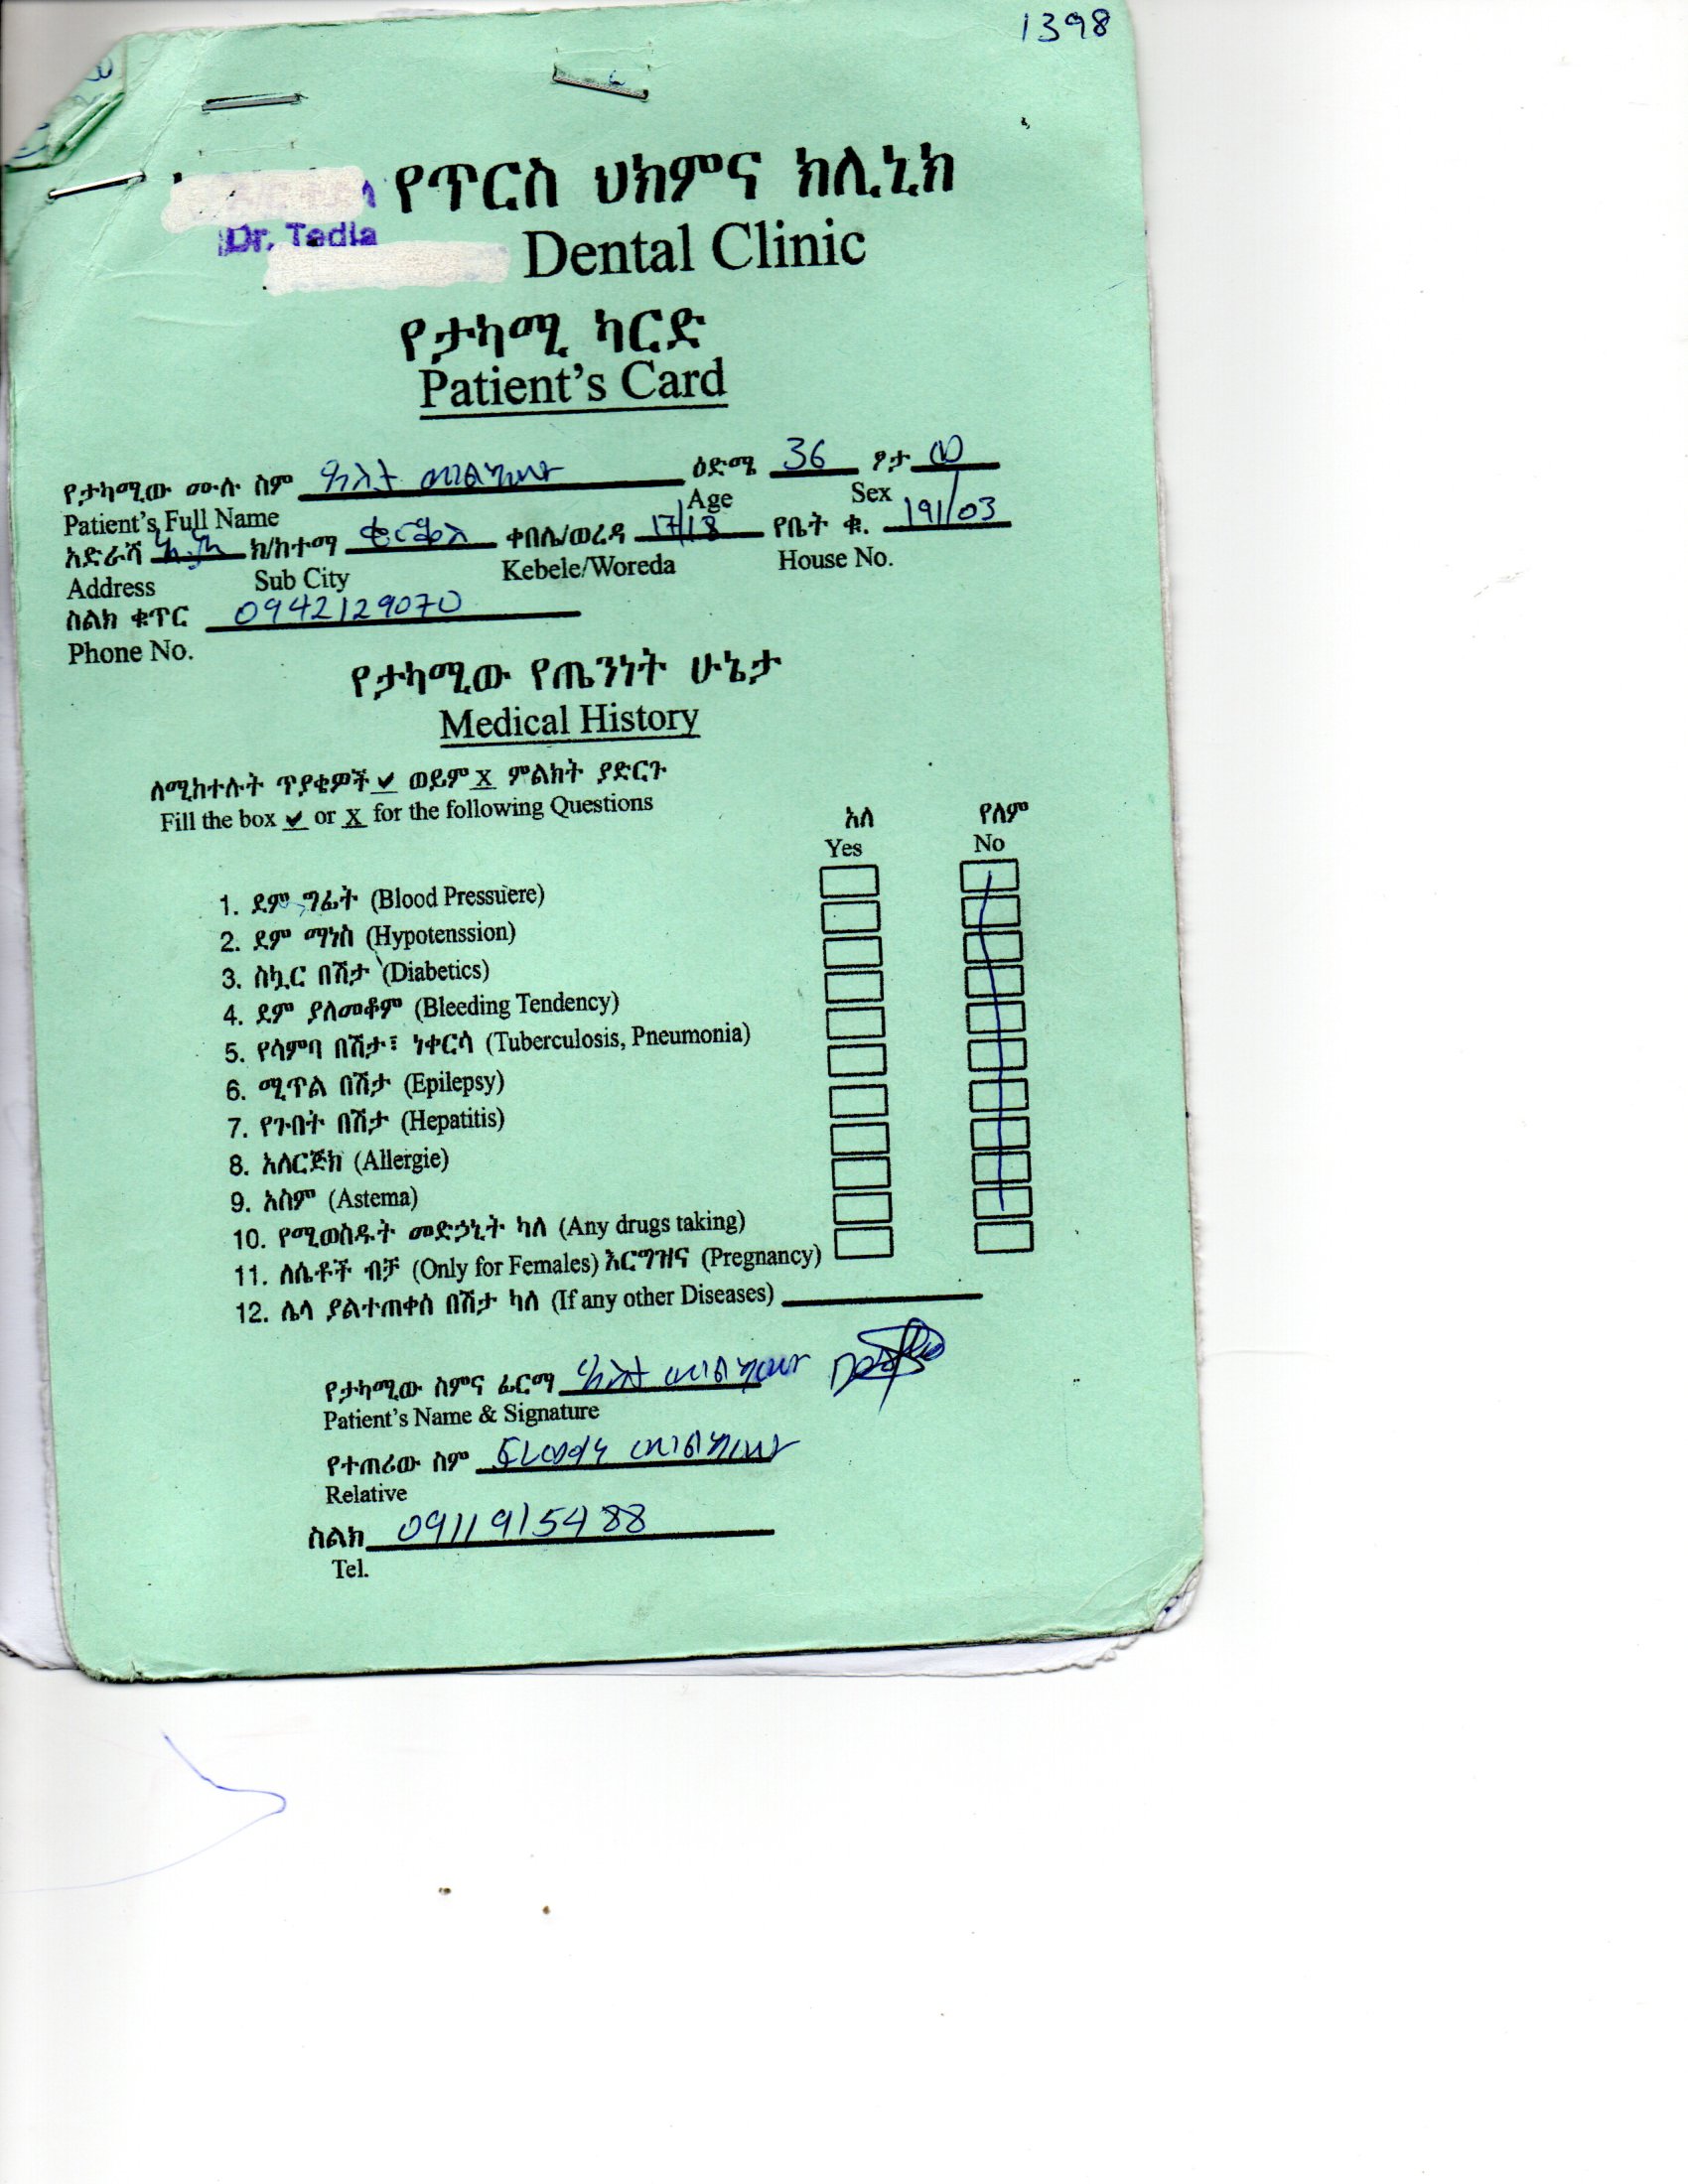 1398
የጥርስ ህክምና ክሊኒክ
Dr. Tadla
Dental Clinic
የታካሚ ካርድ
Patient's Card
የታካሚው ሙሉ ስም ዕድሜ 36 ፆታ ወ
Patient's Full Name Age Sex
አድራሻ አ.አ ክ/ከተማ ቂርቆስ ቀበሌ/ወረዳ 17/18 የቤት ቁ. 191/03
Address Sub City Kebele/Woreda House No.
ስልክ ቁጥር 0942129070
Phone No.
የታካሚው የጤንነት ሁኔታ
Medical History
ለሚከተሉት ጥያቄዎች ✔ ወይም X ምልክት ያድርጉ
Fill the box ✔ or X for the following Questions
አለ የለም
Yes No
1. ደም ግፊት (Blood Pressuere)
2. ደም ማነስ (Hypotenssion)
3. ስኳር በሽታ (Diabetics)
4. ደም ያለመቆም (Bleeding Tendency)
5. የሳምባ በሽታ፣ ነቀርሳ (Tuberculosis, Pneumonia)
6. ሚጥል በሽታ (Epilepsy)
7. የጉበት በሽታ (Hepatitis)
8. አለርጅክ (Allergie)
9. አስም (Astema)
10. የሚወስዱት መድኃኒት ካለ (Any drugs taking)
11. ለሴቶች ብቻ (Only for Females) እርግዝና (Pregnancy)
12. ሌላ ያልተጠቀሰ በሽታ ካለ (If any other Diseases)
የታካሚው ስምና ፊርማ
Patient's Name & Signature
የተጠሪው ስም
Relative
ስልክ 0911915488
Tel.